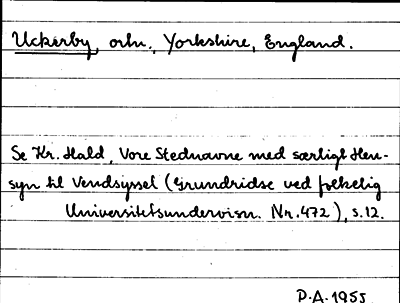 Uckerby, orln., Yorkshire, England.
Se Kr. Hald, Vore Stednavne med særligt Hen-
syn til Vendsyssel (Grundridse ved folkelig
Universitetsundervisn. Nr. 472), s. 12.
P.A. 1955